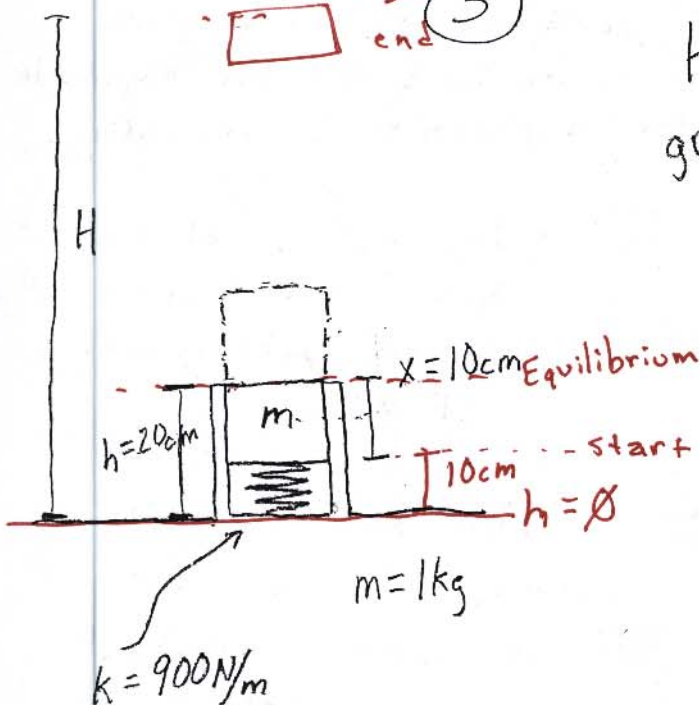 3
end
H
H
x = 10cm Equilibrium
h = 20cm
m
start
10cm
h = Ø
m = 1kg
k = 900N/m